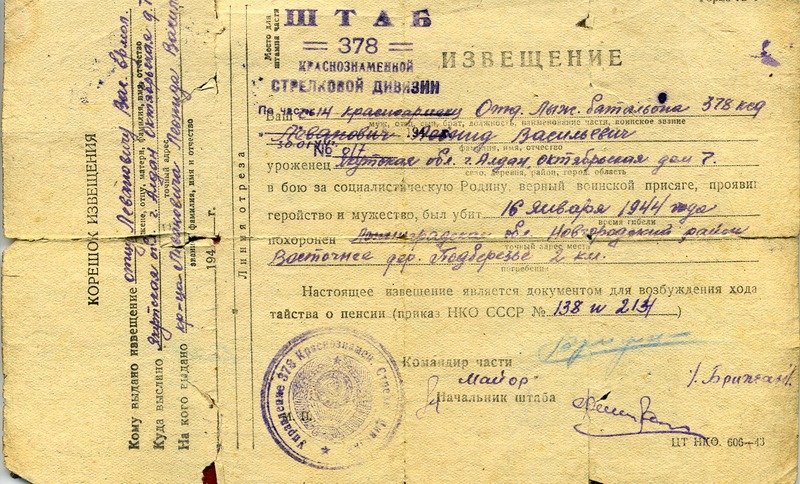 КОРЕШОК ИЗВЕЩЕНИЯ
Кому выдано извещение отцу Левановичу Вас. Ермол.
жене, отцу, матери, фамилия, имя, отчество
Куда выслано Якутская об. г. Алдан, Октябрьская д. 7
точный адрес
На кого выдано кр-ца Левановича Леонида Васил
звание, фамилия, имя и отчество
194 г.
Линия отреза
Место для
штампа части
ШТАБ
378
КРАСНОЗНАМЕННОЙ
СТРЕЛКОВОЙ ДИВИЗИИ
По части
194 г.
№ 0/7
ИЗВЕЩЕНИЕ
Ваш сын красноармеец Отд. Лыж. батальона 378 ксд
муж, сын, брат, должность, наименование части, воинское звание
Леванович Леонид Васильевич
фамилия, имя, отчество
уроженец Якутская обл. г. Алдан, Октябрьская дом 7.
село, деревня, район, город, область
в бою за социалистическую Родину, верный воинской присяге, прояви
геройство и мужество, был убит 16 января 1944 года
время гибели
похоронен Ленинградская обл. Новгородский район
точный адрес места
Восточнее дер. Подберезье 2 км.
погребения
Настоящее извещение является документом для возбуждения хода
тайства о пенсии (приказ НКО СССР № 138 и 213)
Управление 378 Краснознамен. Стрел. Див.
М. П.
Командир части
Майор
Начальник штаба
ЦТ НКО. 606—43